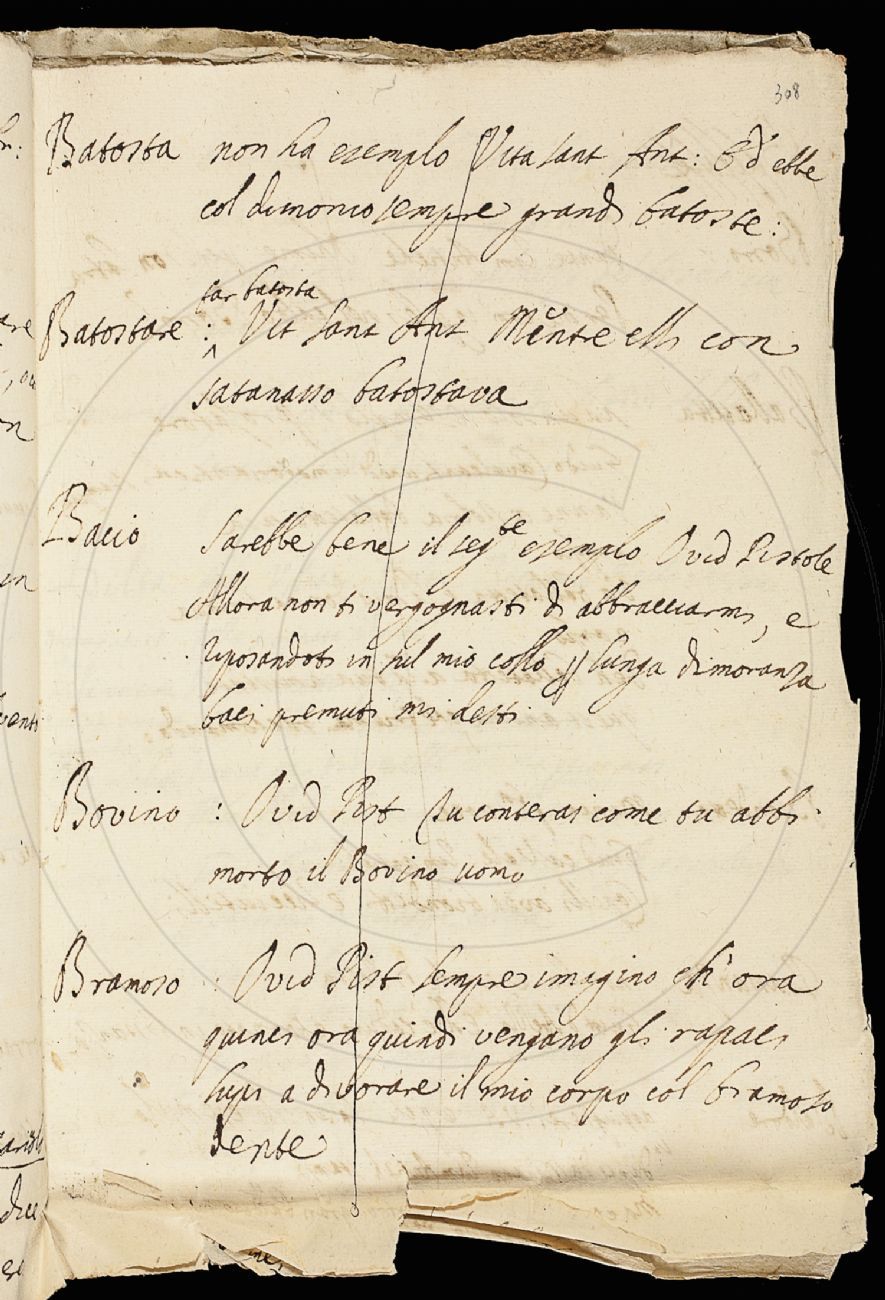 308
Batosta non ha esempio Vita sant Ant: ebbe
col dimonio sempre grandi batoste:
far batosta
Batostare : Vit sant Ant Mentre elli con
satanasso batostava
Bacio sarebbe bene il segte esempio Ovid Pistole
Allora non ti vergognasti di abbracciarmi, e
riposandoti in sul mio collo lunga dimoranza
baci premuti mi desti
Bovino : Ovid Pist tu conterai come tu abbi
morto il Bovino uomo
Bramoso : Ovid Pist sempre imagino ch' ora
quinci ora quindi vengano gli rapaci
lupi a divorare il mio corpo col bramoso
dente